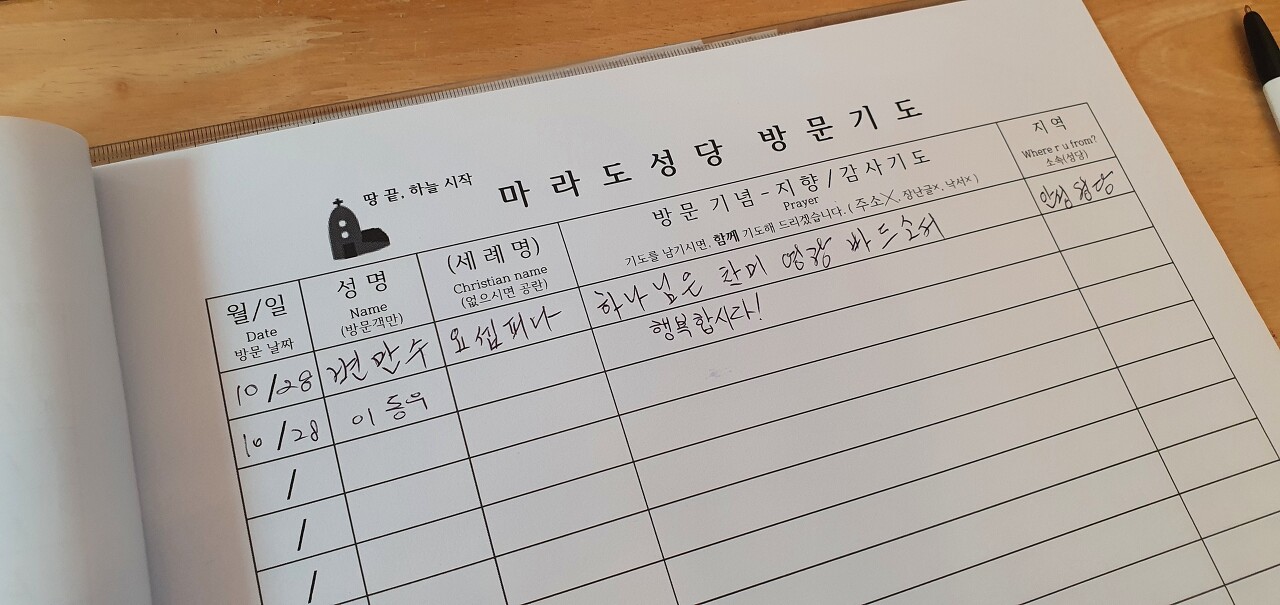 땅 끝, 하늘 시작
마 라 도 성 당 방 문 기 도
월/일
Date
방문 날짜
성 명
Name
(방문객만)
(세 례 명)
Christian name
(없으시면 공란)
방문 기념 - 지향 / 감사기도
Prayer
기도를 남기시면, 함께 기도해 드리겠습니다. ( 주소X, 장난글x, 낙서x )
지역
Where r u from?
소속(성당)
10/28 변만수 요셉피나 하나님은 찬미 영광 받으소서 안성 성당
10/28 이동우 행복합시다!
/
/
/